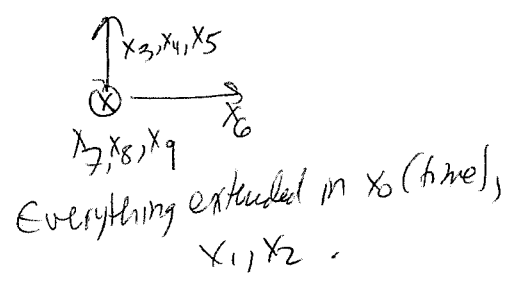 x3,x4,x5
x
x6
x7,x8,x9
Everything extended in x0 (time),
x1,x2.